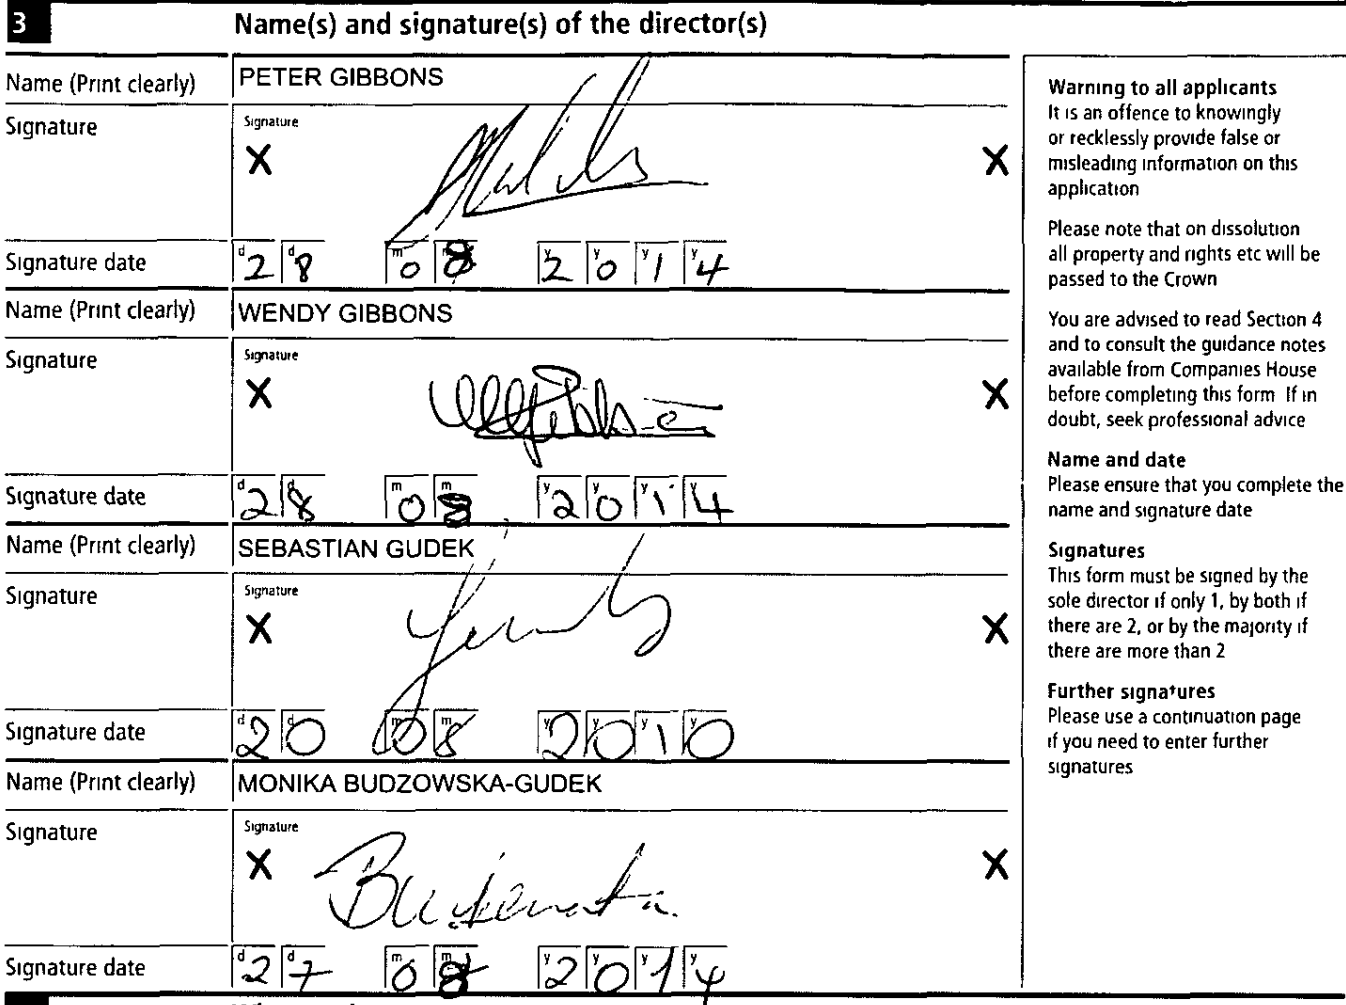 3 Name(s) and signature(s) of the director(s)
Name (Print clearly) PETER GIBBONS
Signature Signature
X X
Signature date d2 d8 m0 m8 y2 y0 y1 y4
Name (Print clearly) WENDY GIBBONS
Signature Signature
X X
Signature date d2 d8 m0 m8 y2 y0 y1 y4
Name (Print clearly) SEBASTIAN GUDEK
Signature Signature
X X
Signature date d2 d0 m0 m8 y2 y0 y1 y0
Name (Print clearly) MONIKA BUDZOWSKA-GUDEK
Signature Signature
X X
Signature date d2 d7 m0 m8 y2 y0 y1 y4
Warning to all applicants
It is an offence to knowingly
or recklessly provide false or
misleading information on this
application
Please note that on dissolution
all property and rights etc will be
passed to the Crown
You are advised to read Section 4
and to consult the guidance notes
available from Companies House
before completing this form If in
doubt, seek professional advice
Name and date
Please ensure that you complete the
name and signature date
Signatures
This form must be signed by the
sole director if only 1, by both if
there are 2, or by the majority if
there are more than 2
Further signatures
Please use a continuation page
if you need to enter further
signatures